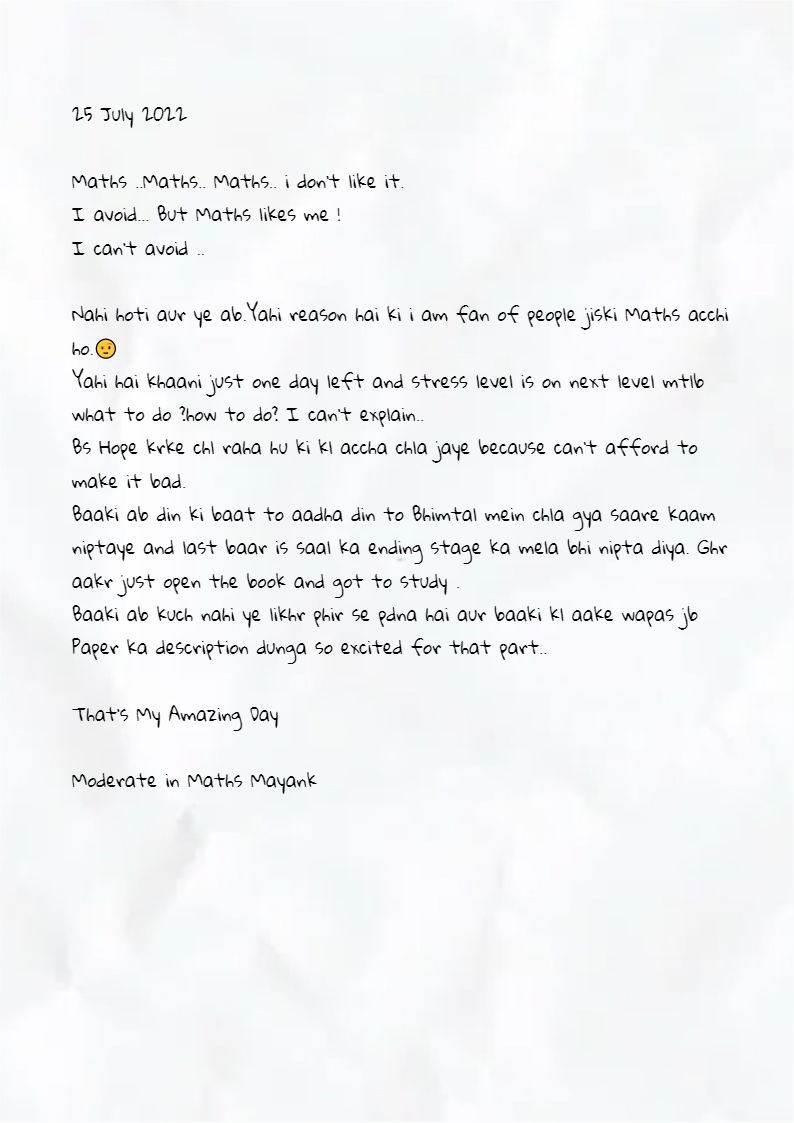 25 July 2022
Maths ..Maths.. Maths.. i don't like it.
I avoid... But Maths likes me !
I can't avoid ..
Nahi hoti aur ye ab.Yahi reason hai ki i am fan of people jiski Maths acchi
ho.🤨
Yahi hai khaani just one day left and stress level is on next level mtlb
what to do ?how to do? I can't explain..
Bs Hope krke chl raha hu ki kl accha chla jaye because can't afford to
make it bad.
Baaki ab din ki baat to aadha din to Bhimtal mein chla gya saare kaam
niptaye and last baar is saal ka ending stage ka mela bhi nipta diya. Ghr
aakr just open the book and got to study .
Baaki ab kuch nahi ye likhr phir se pdna hai aur baaki kl aake wapas jb
Paper ka description dunga so excited for that part..
That's My Amazing Day
Moderate in Maths Mayank